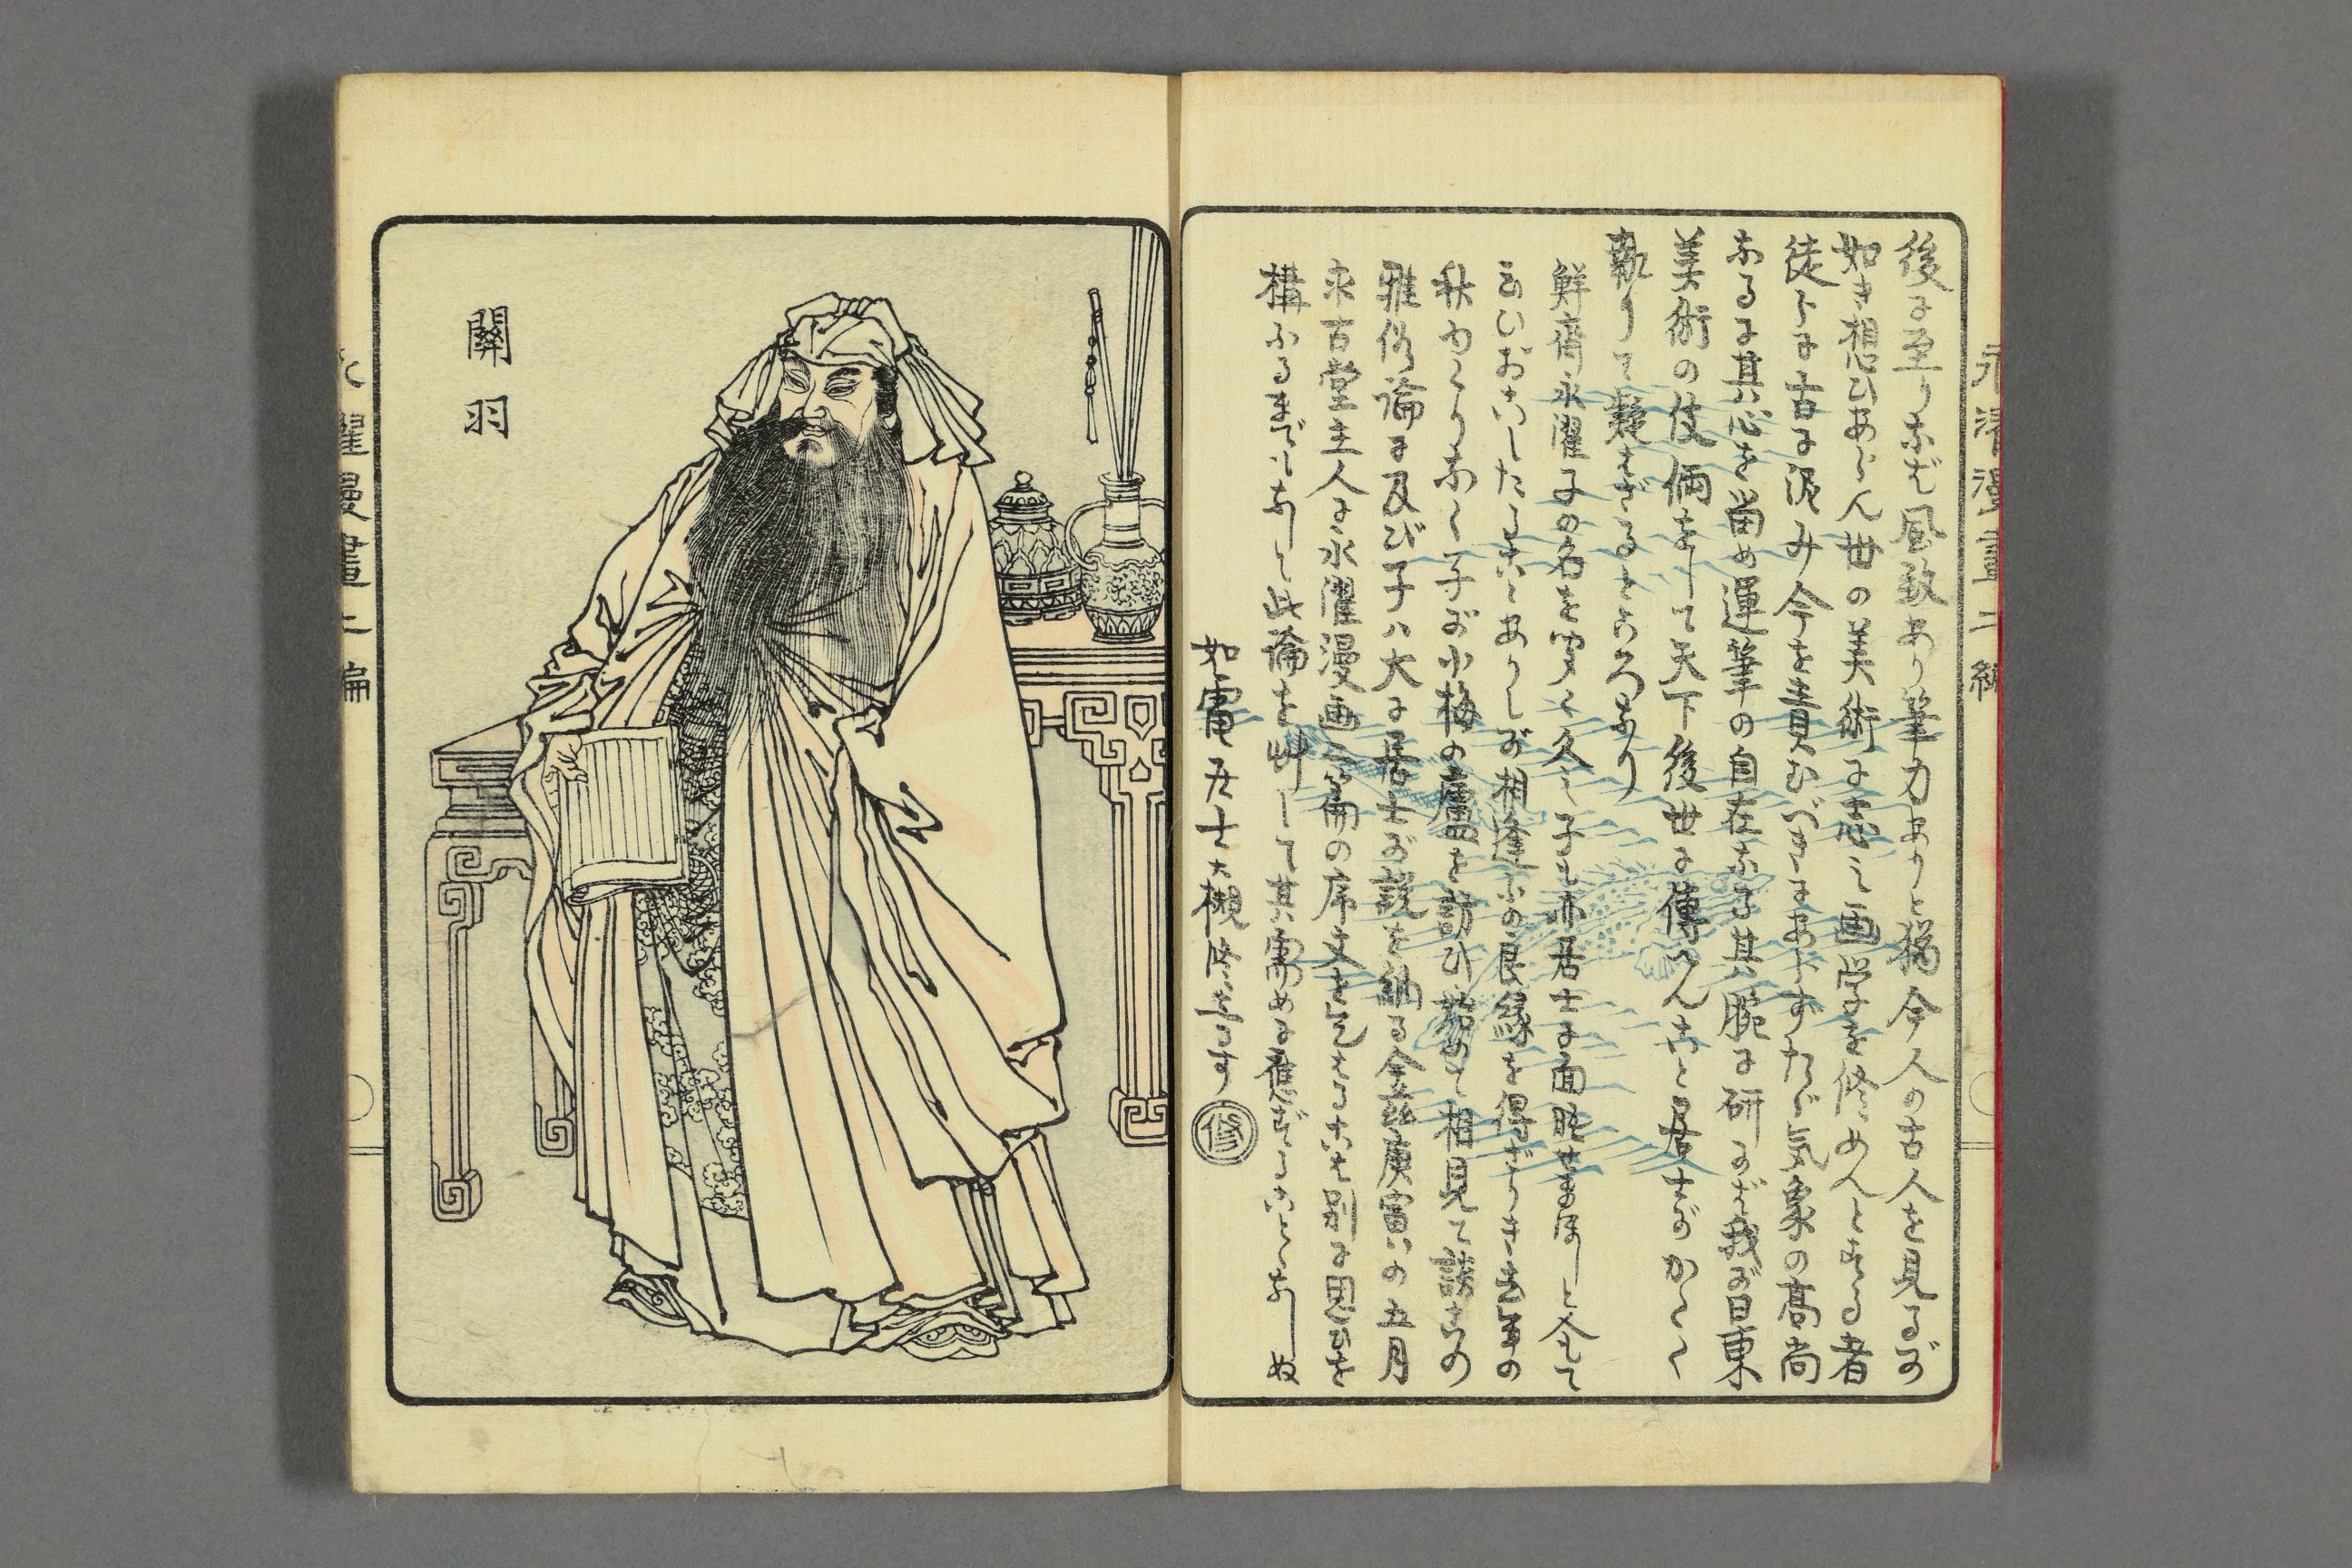 後に至りなば風致あり筆力ありと猶今人の古人を見るが
如き想ひあらん世の美術に志し画学を修めんとする者
徒らに古に泥み今を責むべきにあらずたゞ気象の高尚
なるに其心を留め運筆の自在なる其腕に研かば我が日東
美術の伎倆をして天下後世に傳へんこと居士がかたく
執りて疑はざるところなり
鮮齋永濯子の名を聞く久し子も亦居士に面晤せまほしと人して
云いおこしたることありしが相逢ふの良縁を得ざりき去年の
秋ゆくりなく子が小梅の廬を訪ひ始めて相見て談話の
雅俗論に及び子は大に居士が説を納る今茲庚寅の五月
求古堂主人永濯漫画二篇の序文を乞はるゝも別に思ひを
構ふるまでもなしと此論を艸して其需めに應ずることゝなしぬ
如電居士大槻修しるす
修
關羽
永濯漫畫二編
永濯漫畫二編